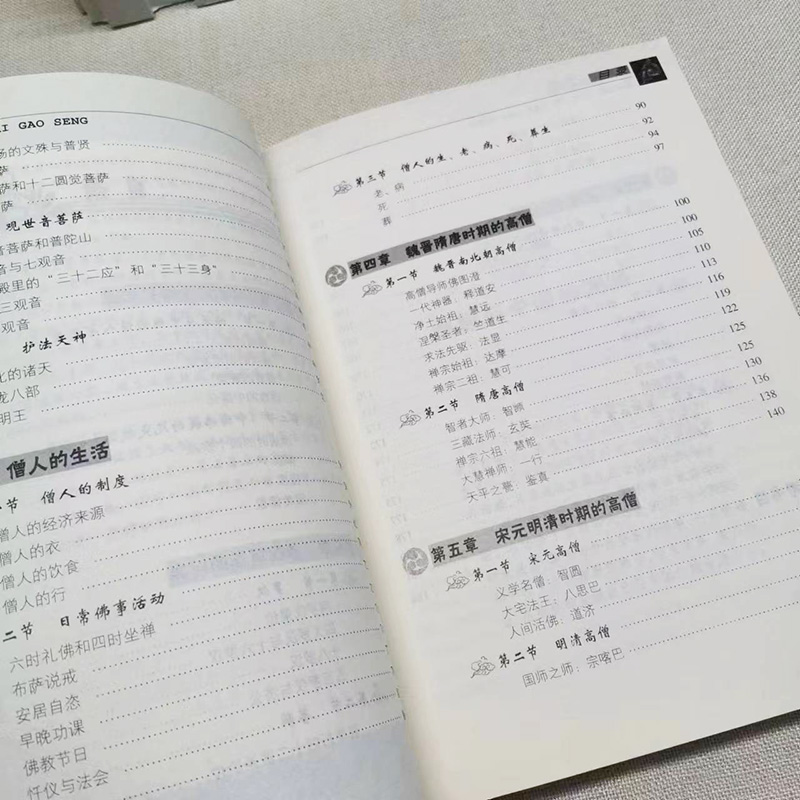 I GAO SENG
场的文殊与普贤
萨
萨和十二圆觉菩萨
萨
观世音菩萨
音菩萨和普陀山
音与七观音
殿里的“三十二应”和“三十三身”
三观音
观音
护法天神
化的诸天
龙八部
明王
僧人的生活
节 僧人的制度
僧人的经济来源
僧人的衣
僧人的饮食
僧人的行
二节 日常佛事活动
六时礼佛和四时坐禅
布萨说戒
安居自恣
早晚功课
佛教节日
忏仪与法会
目录
第三节 僧人的生、老、病、死、葬生 90
老、病 92
死 94
葬 97
第四章 魏晋隋唐时期的高僧 100
第一节 魏晋南北朝高僧 100
高僧导师佛图澄 105
一代神器：释道安 110
净土始祖：慧远 113
涅槃圣者：竺道生 116
求法先驱：法显 119
禅宗始祖：达摩 122
禅宗二祖：慧可 125
第二节 隋唐高僧 125
智者大师：智顗 130
三藏法师：玄奘 136
禅宗六祖：慧能 138
大慧禅师：一行 140
天平之甍：鉴真
第五章 宋元明清时期的高僧
第一节 宋元高僧
义学名僧：智圆
大宅法王：八思巴
人间活佛：道济
第二节 明清高僧
国师之师：宗喀巴